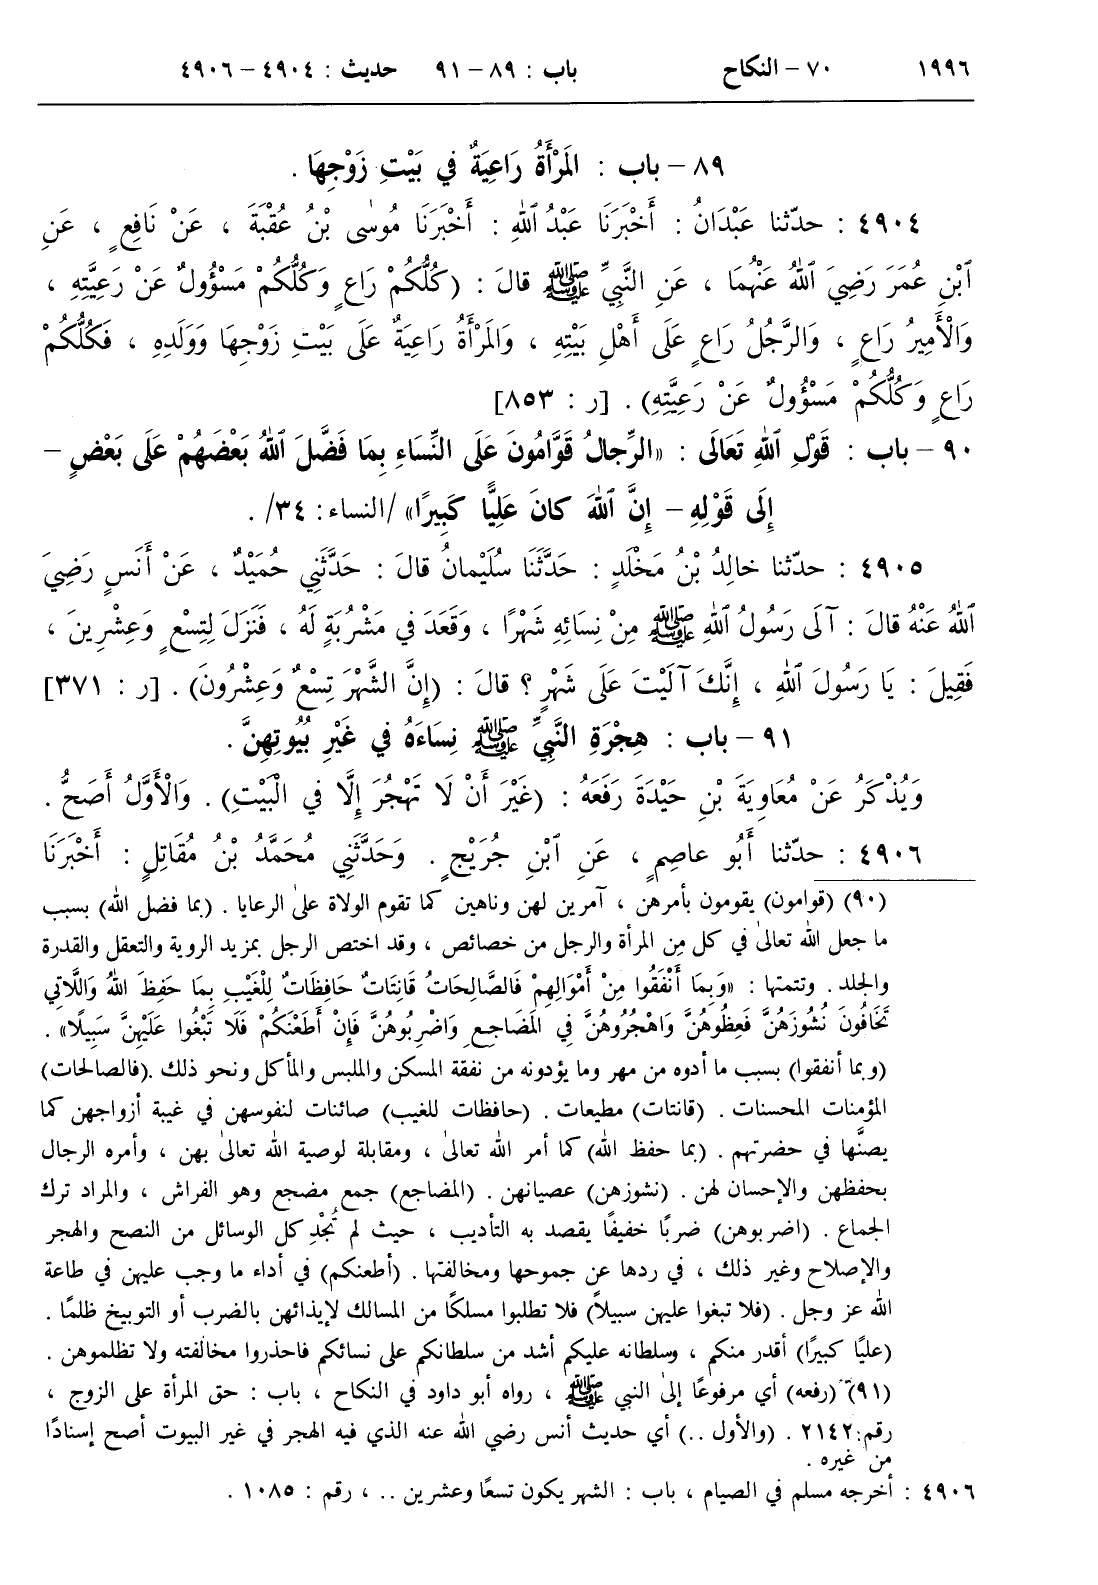 ١٩٩٦ ٧٠ – النكاح باب : ٨٩ – ٩١ حديث : ٤٩٠٤ – ٤٩٠٦
٨٩ – باب : المَرْأَةُ رَاعِيَةٌ في بَيْتِ زَوْجِهَا .
٤٩٠٤ : حدّثنا عَبْدَانُ : أَخْبَرَنَا عَبْدُ ٱللهِ : أَخْبَرَنَا مُوسٰى بْنُ عُقْبَةَ ، عَنْ نَافِعٍ ، عَنِ
ٱبْنِ عُمَرَ رَضِيَ ٱللهُ عَنْهُمَا ، عَنِ النَّبِيِّ ﷺ قالَ : (كُلُّكُمْ رَاعٍ وَكُلُّكُمْ مَسْؤُولٌ عَنْ رَعِيَّتِهِ ،
وَالْأَمِيرُ رَاعٍ ، وَالرَّجُلُ رَاعٍ عَلَى أَهْلِ بَيْتِهِ ، وَالمَرْأَةُ رَاعِيَةٌ عَلَى بَيْتِ زَوْجِهَا وَوَلَدِهِ ، فَكُلُّكُمْ
رَاعٍ وَكُلُّكُمْ مَسْؤُولٌ عَنْ رَعِيَّتِهِ) . [ر : ٨٥٣]
٩٠ – باب : قَوْلِ ٱللهِ تَعَالَى : «الرِّجالُ قَوَّامُونَ عَلَى النِّسَاءِ بِمَا فَضَّلَ ٱللهُ بَعْضَهُمْ عَلَى بَعْضٍ –
إِلَى قَوْلِهِ – إِنَّ ٱللهَ كانَ عَلِيًّا كَبِيرًا» /النساء: ٣٤/ .
٤٩٠٥ : حدّثنا خالِدُ بْنُ مَخْلَدٍ : حَدَّثَنَا سُلَيْمانُ قالَ : حَدَّثَنِي حُمَيْدٌ ، عَنْ أَنَسٍ رَضِيَ
ٱللهُ عَنْهُ قالَ : آلَى رَسُولُ ٱللهِ ﷺ مِنْ نِسَائِهِ شَهْرًا ، وَقَعَدَ في مَشْرُبَةٍ لَهُ ، فَنَزَلَ لِتِسْعٍ وَعِشْرِينَ ،
فَقِيلَ : يَا رَسُولَ ٱللهِ ، إِنَّكَ آلَيْتَ عَلَى شَهْرٍ ؟ قالَ : (إِنَّ الشَّهْرَ تِسْعٌ وَعِشْرُونَ) . [ر : ٣٧١]
٩١ – باب : هِجْرَةِ النَّبِيِّ ﷺ نِسَاءَهُ في غَيْرِ بُيُوتِهِنَّ .
وَيُذْكَرُ عَنْ مُعَاوِيَةَ بْنِ حَيْدَةَ رَفَعَهُ : (غَيْرَ أَنْ لَا تَهْجُرَ إِلَّا في الْبَيْتِ) . وَالْأَوَّلُ أَصَحُّ .
٤٩٠٦ : حدّثنا أَبُو عاصِمٍ ، عَنِ ٱبْنِ جُرَيْجٍ . وَحَدَّثَنِي مُحَمَّدُ بْنُ مُقَاتِلٍ : أَخْبَرَنَا
(٩٠) (قوامون) يقومون بأمرهن ، آمرين لهن وناهين كما تقوم الولاة على الرعايا . (بما فضل الله) بسبب
ما جعل الله تعالىٰ في كل مِن المرأة والرجل من خصائص ، وقد اختص الرجل بمزيد الروية والتعقل والقدرة
والجلد . وتتمتها : «وَبِمَا أَنْفَقُوا مِنْ أَمْوَالِهِمْ فَالصَّالِحَاتُ قَانِتَاتٌ حَافِظَاتٌ لِلْغَيْبِ بِمَا حَفِظَ اللهُ وَاللَّاتِي
تَخَافُونَ نُشُوزَهُنَّ فَعِظُوهُنَّ وَاهْجُرُوهُنَّ فِي المَضَاجِعِ وَاضْرِبُوهُنَّ فَإِنْ أَطَعْنَكُمْ فَلَا تَبْغُوا عَلَيْهِنَّ سَبِيلًا» .
(وبما أنفقوا) بسبب ما أدوه من مهر وما يؤدونه من نفقة المسكن والملبس والمأكل ونحو ذلك .(فالصالحات)
المؤمنات المحسنات . (قانتات) مطيعات . (حافظات للغيب) صائنات لنفوسهن في غيبة أزواجهن كما
يصنَّها في حضرتهم . (بما حفظ الله) كما أمر الله تعالىٰ ، ومقابلة لوصية الله تعالىٰ بهن ، وأمره الرجال
بحفظهن والإحسان لهن . (نشوزهن) عصيانهن . (المضاجع) جمع مضجع وهو الفراش ، والمراد ترك
الجماع . (اضربوهن) ضربًا خفيفًا يقصد به التأديب ، حيث لم تُجْدِ كل الوسائل من النصح والهجر
والإصلاح وغير ذلك ، في ردها عن جموحها ومخالفتها . (أطعنكم) في أداء ما وجب عليهن في طاعة
الله عز وجل . (فلا تبغوا عليهن سبيلاً) فلا تطلبوا مسلكًا من المسالك لإيذائهن بالضرب أو التوبيخ ظلمًا .
(عليًا كبيرًا) أقدر منكم ، وسلطانه عليكم أشد من سلطانكم على نسائكم فاحذروا مخالفته ولا تظلموهن .
(٩١) (رفعه) أي مرفوعًا إلىٰ النبي ﷺ ، رواه أبو داود في النكاح ، باب : حق المرأة على الزوج ،
رقم:٢١٤٢ . (والأول ..) أي حديث أنس رضي الله عنه الذي فيه الهجر في غير البيوت أصح إسنادًا
من غيره .
٤٩٠٦ : أخرجه مسلم في الصيام ، باب : الشهر يكون تسعًا وعشرين .. ، رقم : ١٠٨٥ .